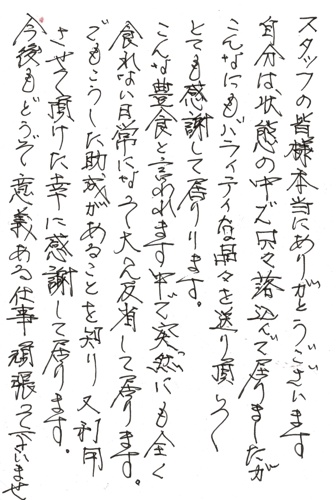 スタッフの皆様本当にありがとうございます
自分は、状態の中で少々落込んで居りましたが
こんなにもバラィティな品々を送り頂いて
とても感謝して居ります。
こんな豊食と言われます中で突然にも全く
食れない日常になって大へん反省して居ります。
でもこうした助成があることを知り 又利用
させて頂けた幸に感謝して居ります。
今後もどうぞ意義ある仕事頑張って下いませ